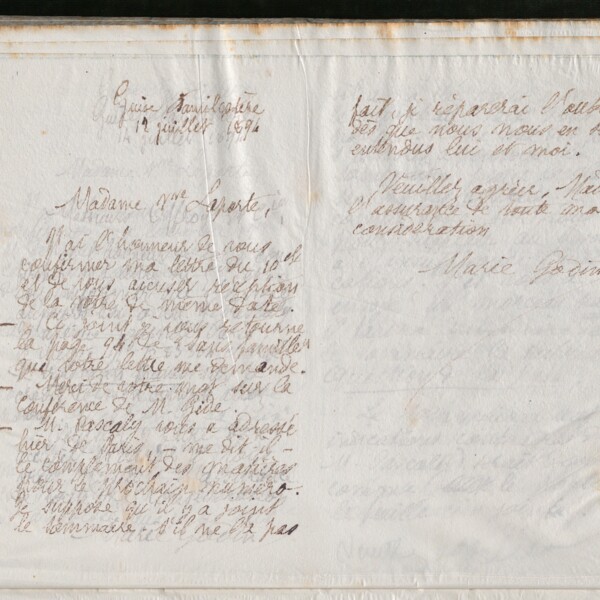 Guise Familistère
12 juillet 1894
Madame Vve Laporte,
J'ai l'honneur de vous
confirmer ma lettre du 10 ct
et de vous accuser réception
de la vôtre de même date.
— Ci joint je vous retourne
la page 94 de "Sans famille"
que votre lettre me demande.
— Merci de votre mot sur la
Conférence de M. Gide.
— M. Pascaly vous a adressé
hier de Paris — me dit-il —
le complément des matières
pour le prochain numéro.
Je suppose qu'il y a joint
le sommaire. S'il ne l'a pas
fait, je réparerai l'oubli
dès que nous nous en
entendus lui et moi.
Veuillez agréer, Mad
l'assurance de toute ma
considération
Marie Godin